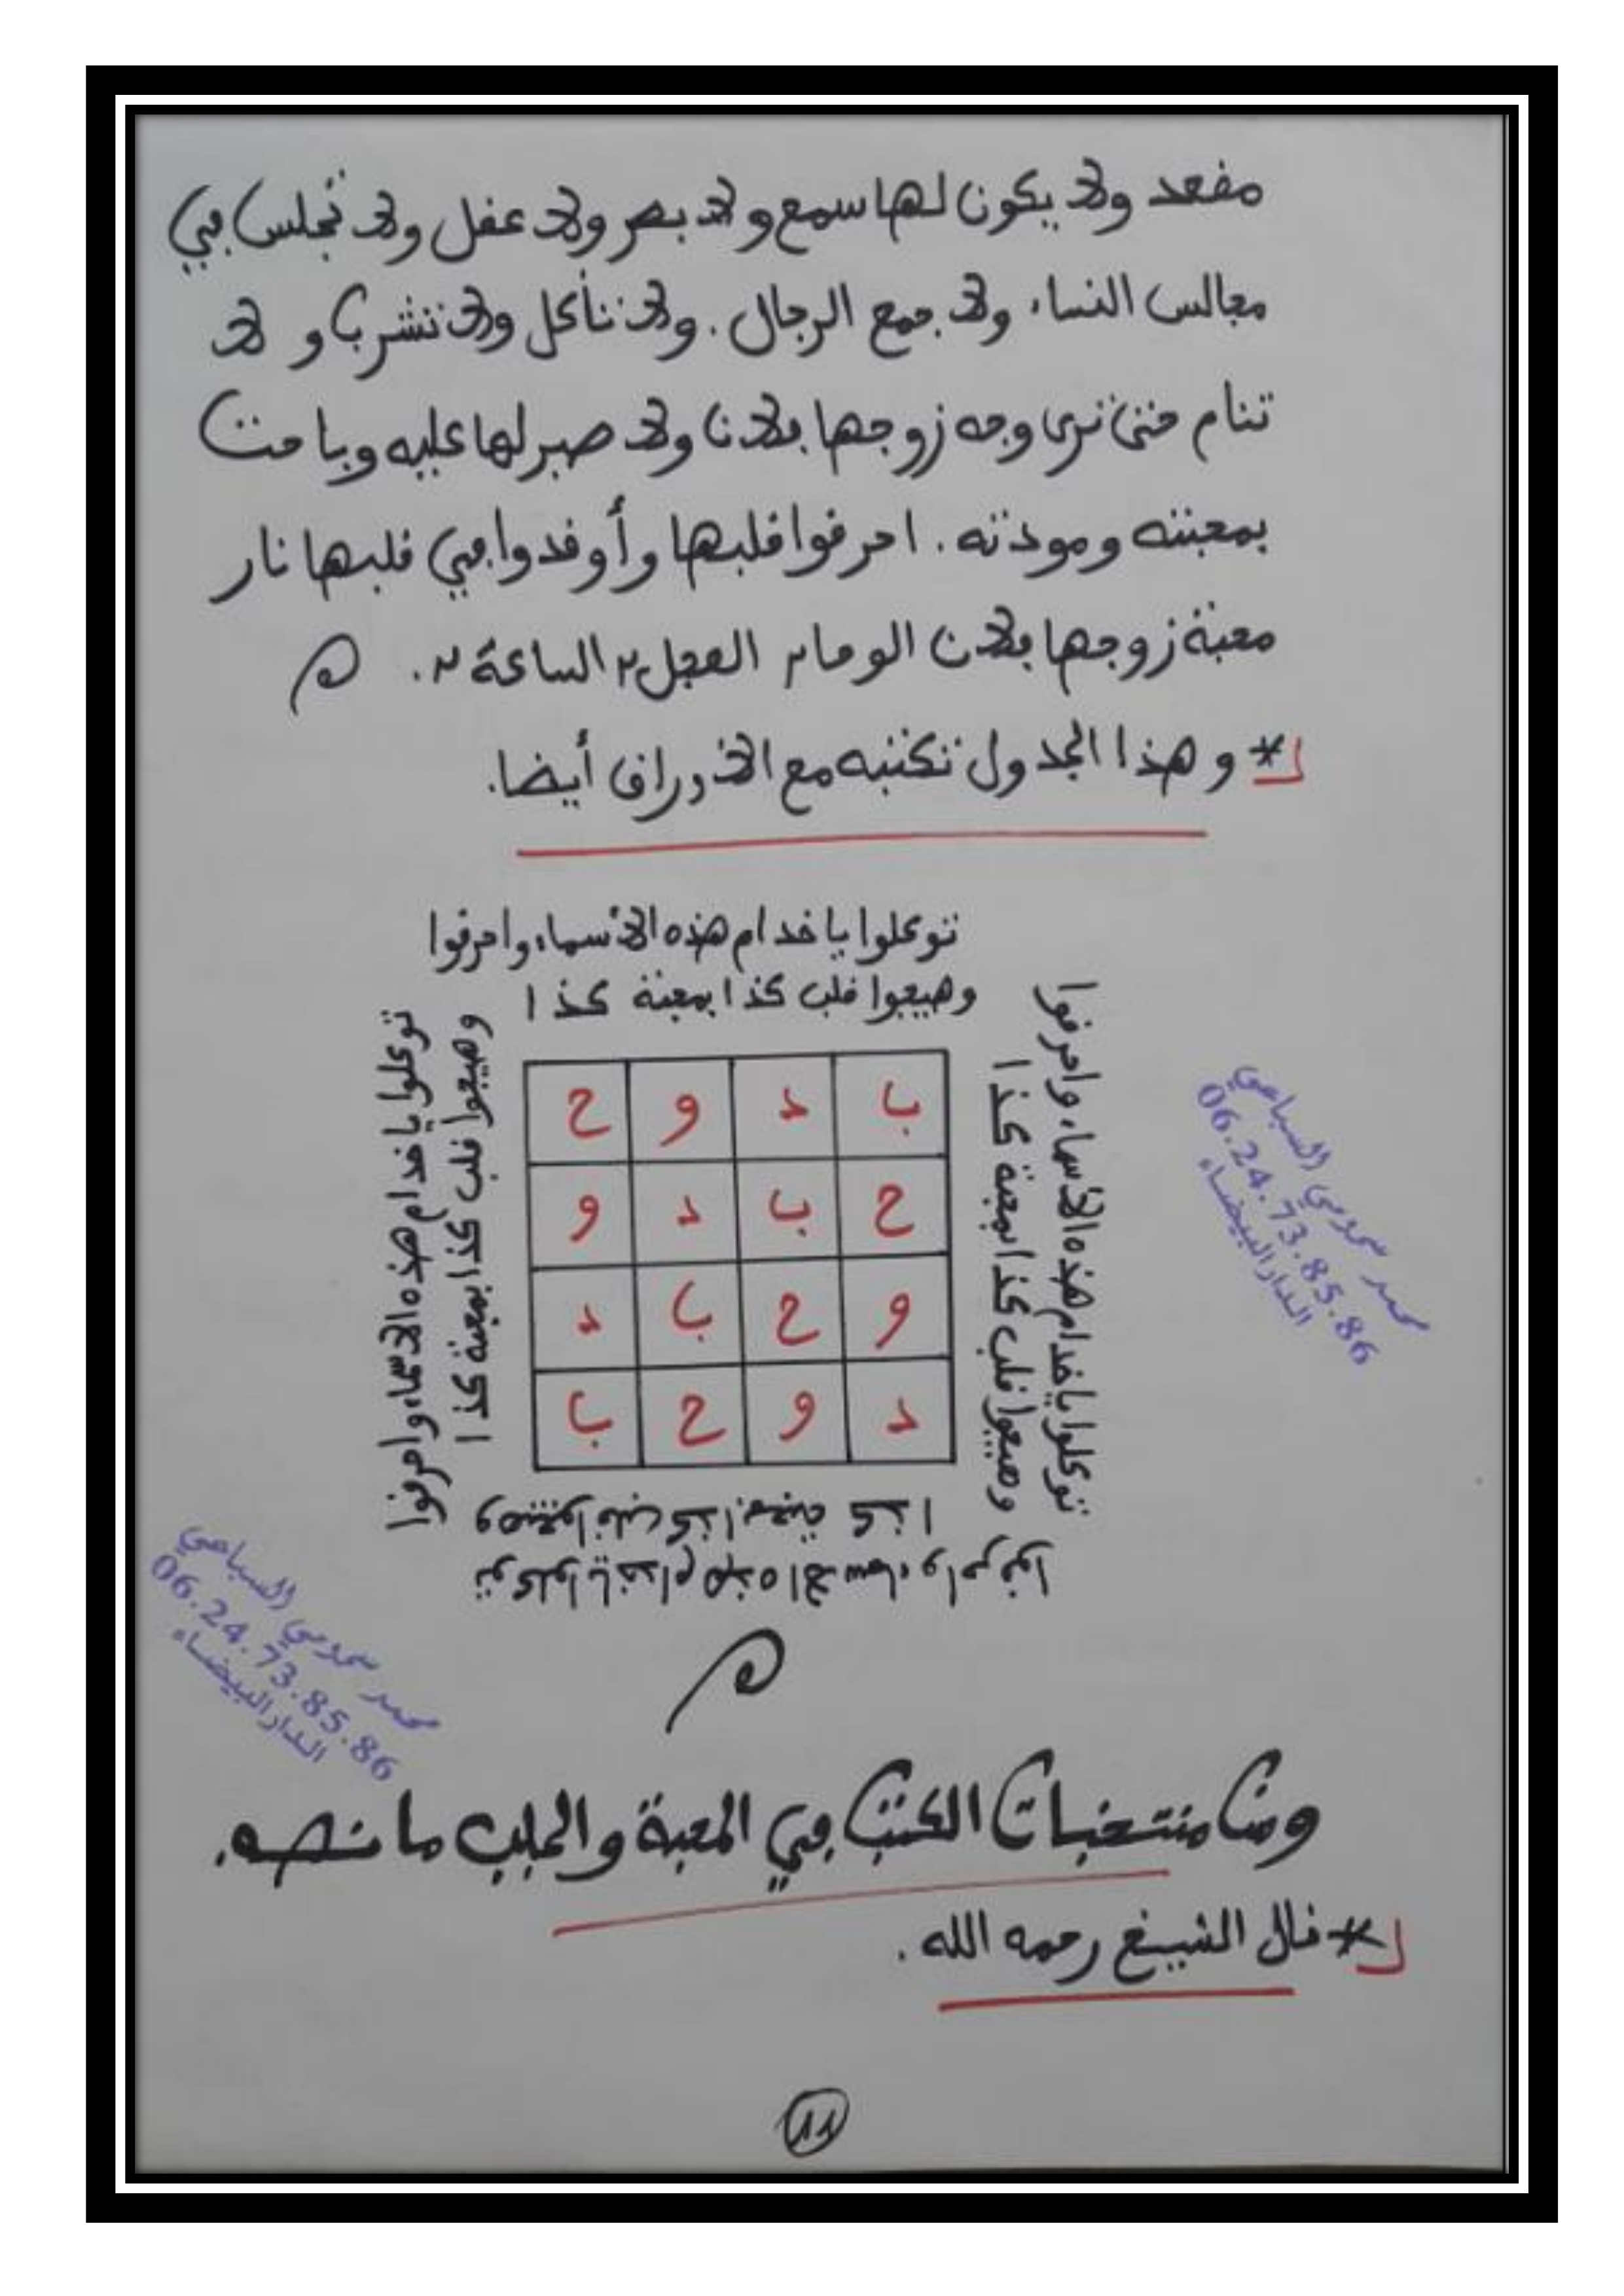 مفعد ولا يكون لها سمع ولا بصر ولا عفل ولا تجلس في
مجالس النساء ولا جمع الرجال. ولا تأكل ولا تشرب و لا
تنام حتى ترى وجه زوجها بلان ولا صبر لها عليه وباحت
بمحبته ومودته. احرفوا فلبها وأوفدوا في فلبها نار
محبة زوجها بلان الوحا٢ العجل٢ الساعة٢.
* وهذا الجدول تكتبه مع الأوراف أيضا.
توكلوا يا خدام هذه الأسماء واحرفوا
وهيجوا فلب كذا بمحبة كذا
توكلوا يا خدام هذه الأسماء واحرفوا
وهيجوا فلب كذا بمحبة كذا
توكلوا يا خدام هذه الأسماء واحرفوا
وهيجوا فلب كذا بمحبة كذا
ب د و ح
ح ب د و
و ح ب د
د و ح ب
وهيجوا فلب كذا بمحبة كذا
توكلوا يا خدام هذه الأسماء واحرفوا
محمد سحومي السباعي
06.24.73.85.86
الدار البيضاء
محمد سحومي السباعي
06.24.73.85.86
الدار البيضاء
ومن منتخبات الكتب في المحبة والجلب ما نصه.
* فال الشيخ رحمه الله.
11